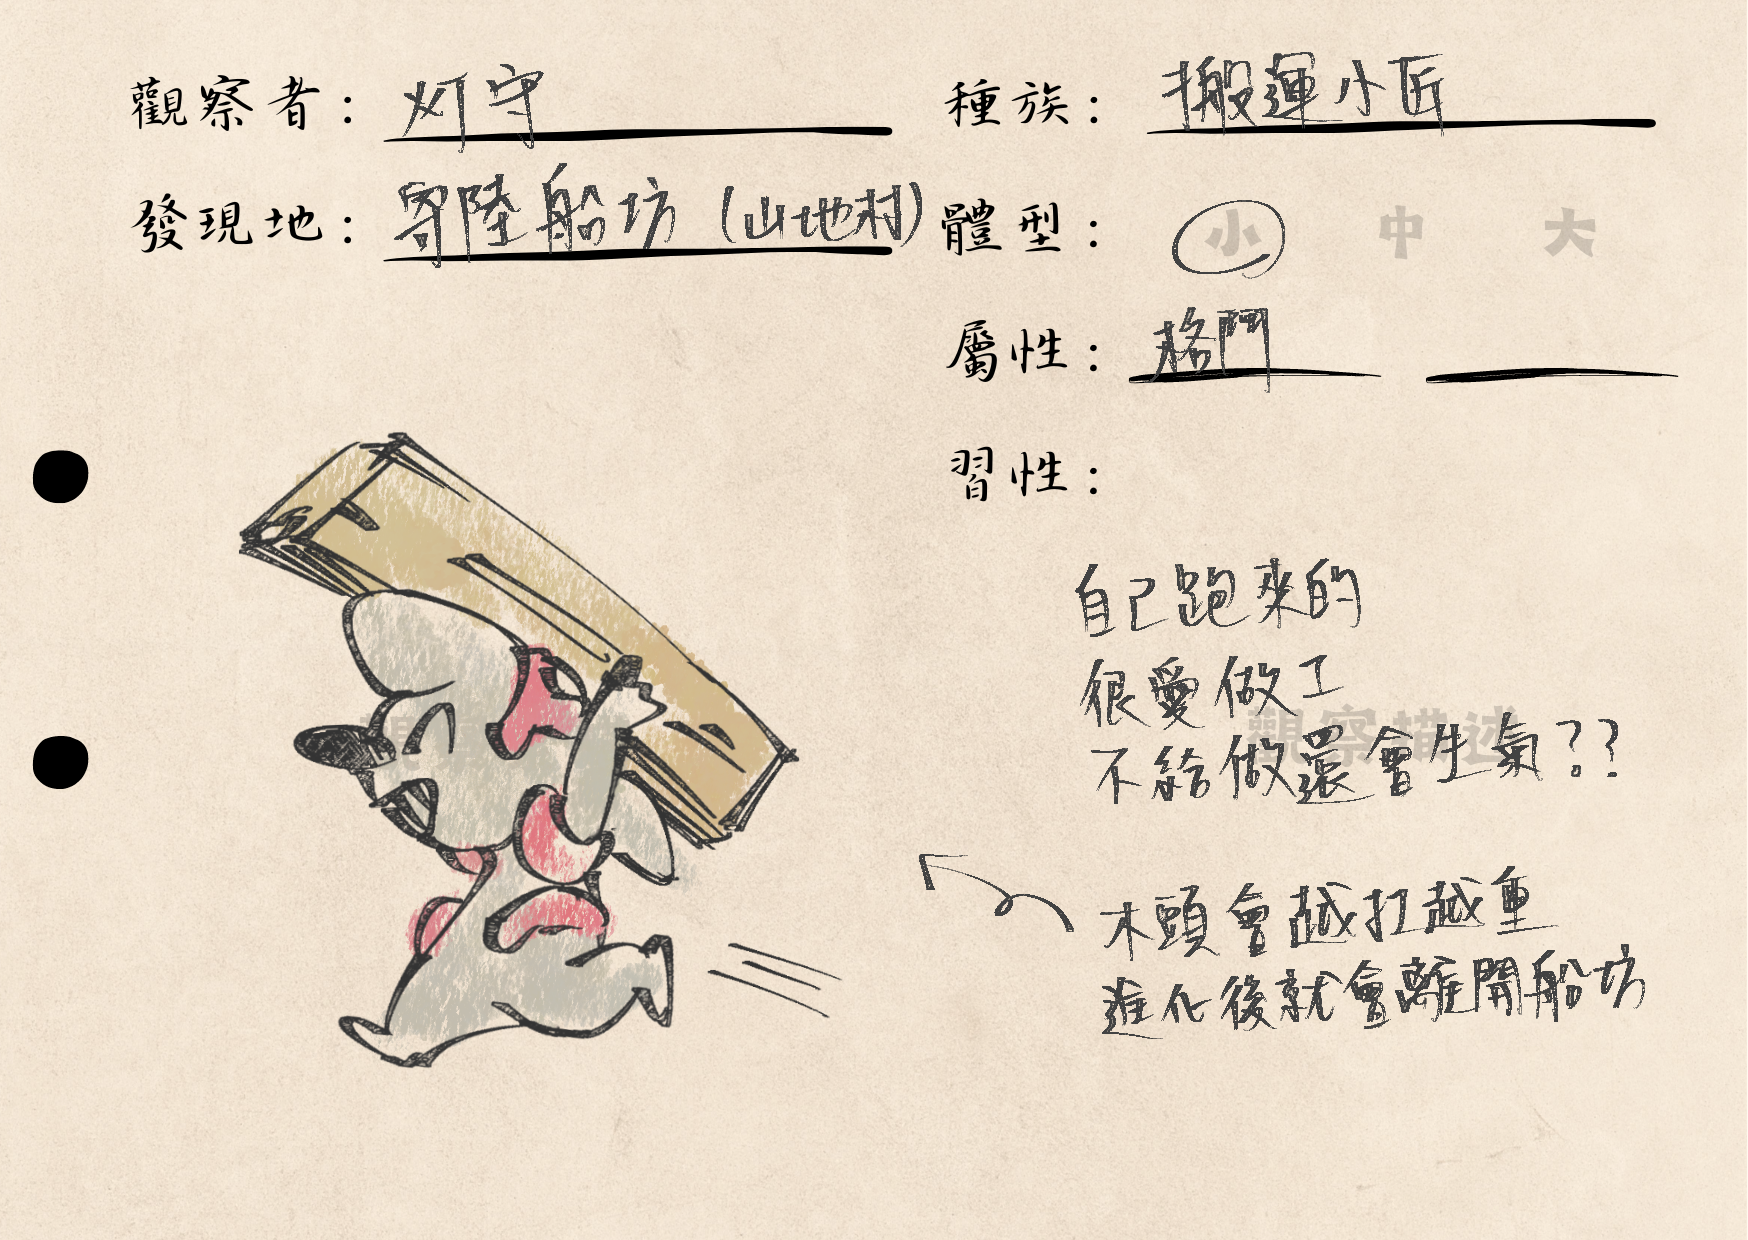 觀察者： 刈守
發現地： 寄陸船坊（山地村）
種族： 搬運小匠
體型： 小 中 大
屬性： 格鬥
習性：
自己跑來的
很愛做工
觀察描述
不給做還會生氣？？
木頭會越扛越重
進化後就會離開船坊